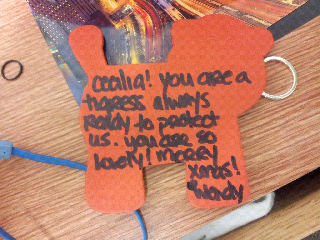 Cecilia! you are a
tigress always
ready to protect
us. you are so
lovely! merry
xmas!
Wady